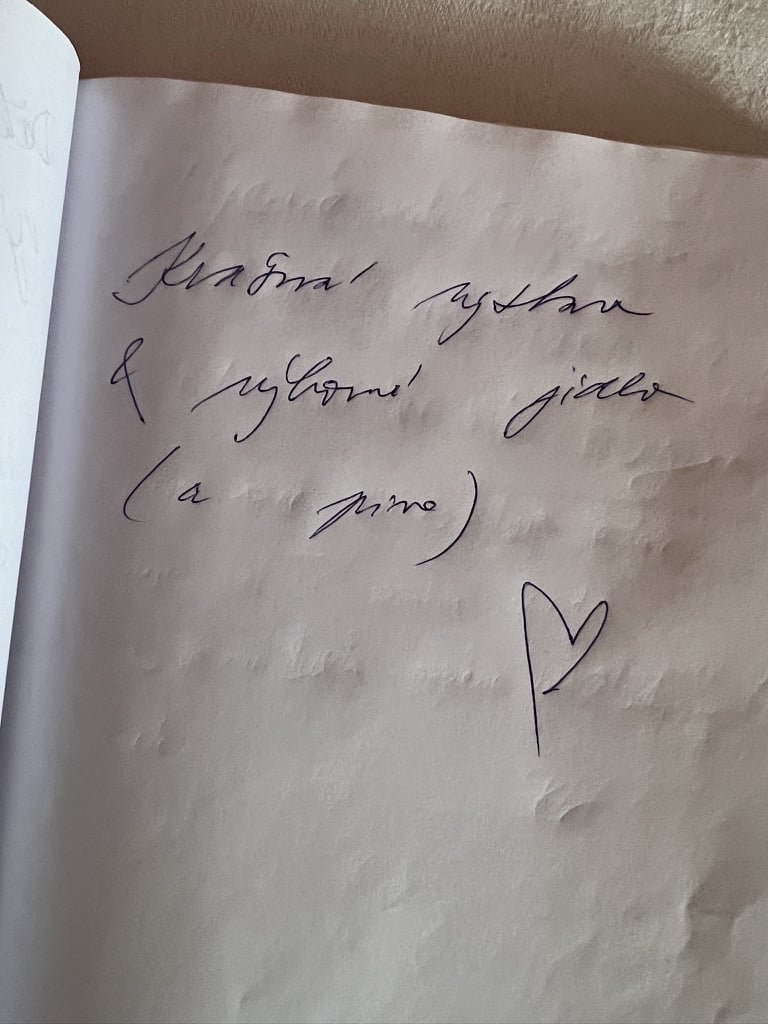 Krásná výstava
& výborné jídlo
(a pivo)